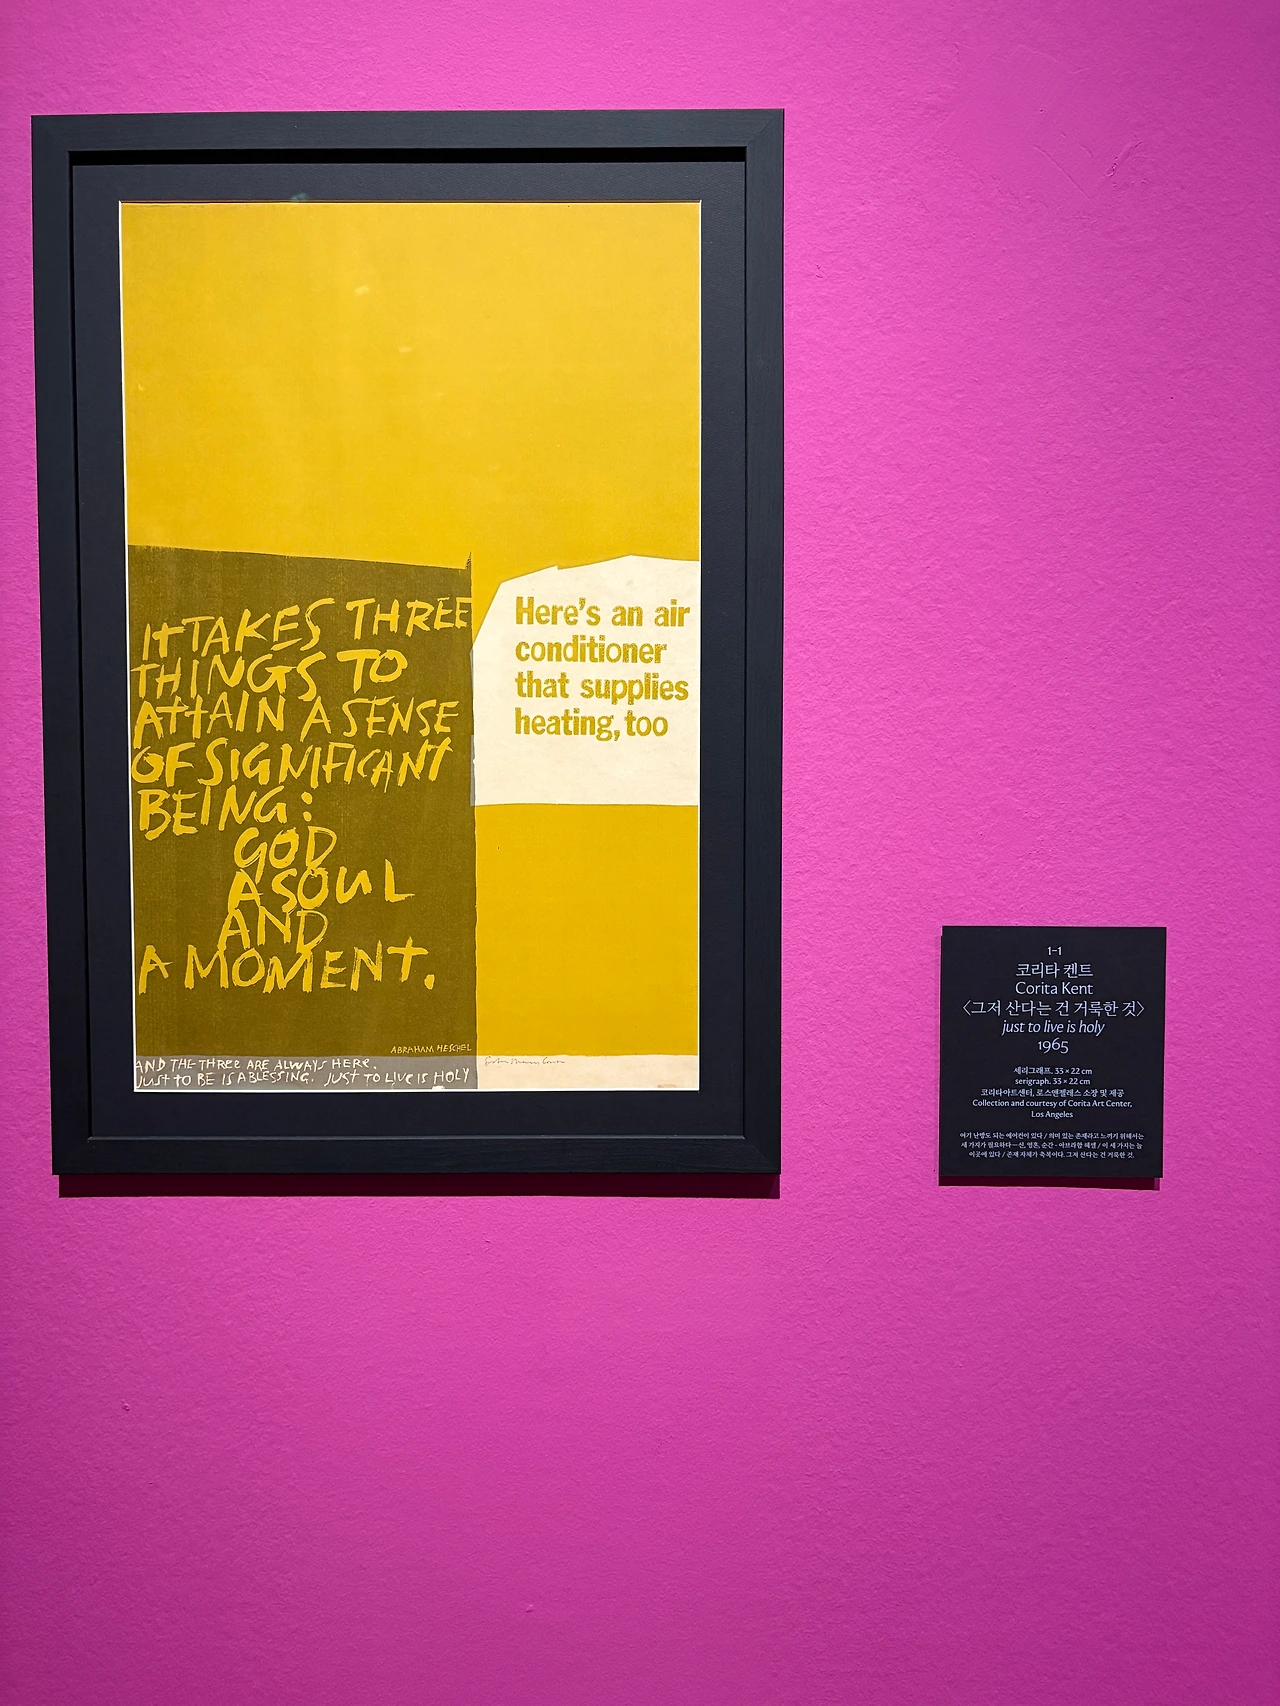 IT TAKES THREE
THINGS TO
ATTAIN A SENSE
OF SIGNIFICANT
BEING:
GOD
A SOUL
AND
A MOMENT.
ABRAHAM HESCHEL
AND THE THREE ARE ALWAYS HERE.
JUST TO BE IS A BLESSING. JUST TO LIVE IS HOLY
Here's an air
conditioner
that supplies
heating, too
1-1
코리타 켄트
Corita Kent
〈그저 산다는 건 거룩한 것〉
just to live is holy
1965
세리그래프. 33 × 22 cm
serigraph. 33 × 22 cm
코리타아트센터, 로스앤젤레스 소장 및 제공
Collection and courtesy of Corita Art Center,
Los Angeles
여기 난방도 되는 에어컨이 있다 / 의미 있는 존재라고 느끼기 위해서는
세 가지가 필요하다—신, 영혼, 순간 - 아브라함 헤셸 / 이 세 가지는 늘
이곳에 있다 / 존재 자체가 축복이다. 그저 산다는 건 거룩한 것.